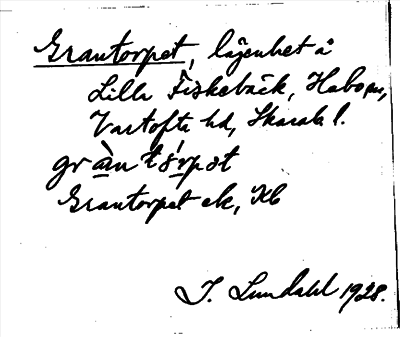 Grantorpet, lägenhet å
Lilla Fiskebäck, Habo sn,
Vartofta hd, Skarab. l.
gràntó̱rpət
Grantorpet ek, Kb
I. Lundahl 1928.